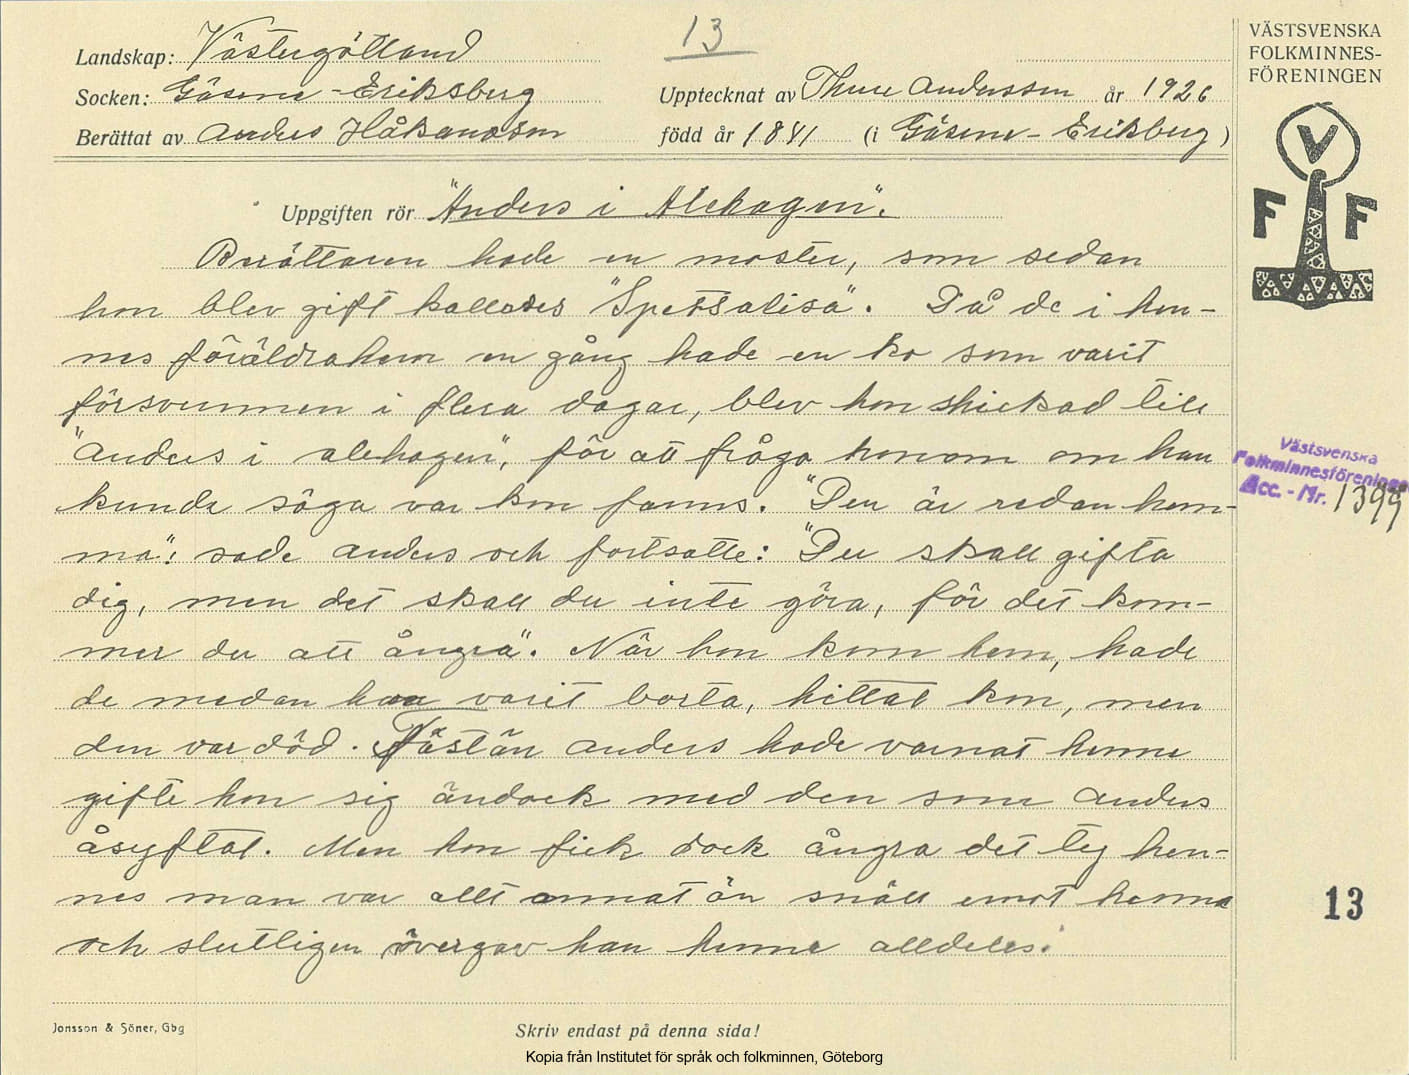 13
Landskap: Västergötland
Socken: Gäsene-Eriksberg
Upptecknat av Thure Andersson år 1926
Berättat av Anders Håkansson
född år 1841 (i Gäsene-Eriksberg)
VÄSTSVENSKA
FOLKMINNES-
FÖRENINGEN
V
F F
Uppgiften rör "Anders i Alehagen".
Berättaren hade en moster, som sedan
hon blev gift kallades "Spetsalisa". Då de i hen-
nes föräldrahem en gång hade en ko som varit
försvunnen i flera dagar, blev hon skickad till
"Anders i alehagen", för att fråga honom om han
kunde säga var kon fanns. "Den är redan hem-
ma": sade Anders och fortsatte: "Du skall gifta
dig, men det skall du inte göra, för det kom-
mer du att ångra". När hon kom hem, hade
de medan hon varit borta, hittat kon, men
den var död. Fastän Anders hade varnat henne
gifte hon sig ändock med den som Anders
åsyftat. Men hon fick dock ångra det ty hen-
nes man var allt annat än snäll emot henne
och slutligen övergav han henne alldeles.
Västsvenska
Folkminnesföreningen
Acc. - Nr. 1399
13
Jonsson & Söner, Gbg
Skriv endast på denna sida!
Kopia från Institutet för språk och folkminnen, Göteborg